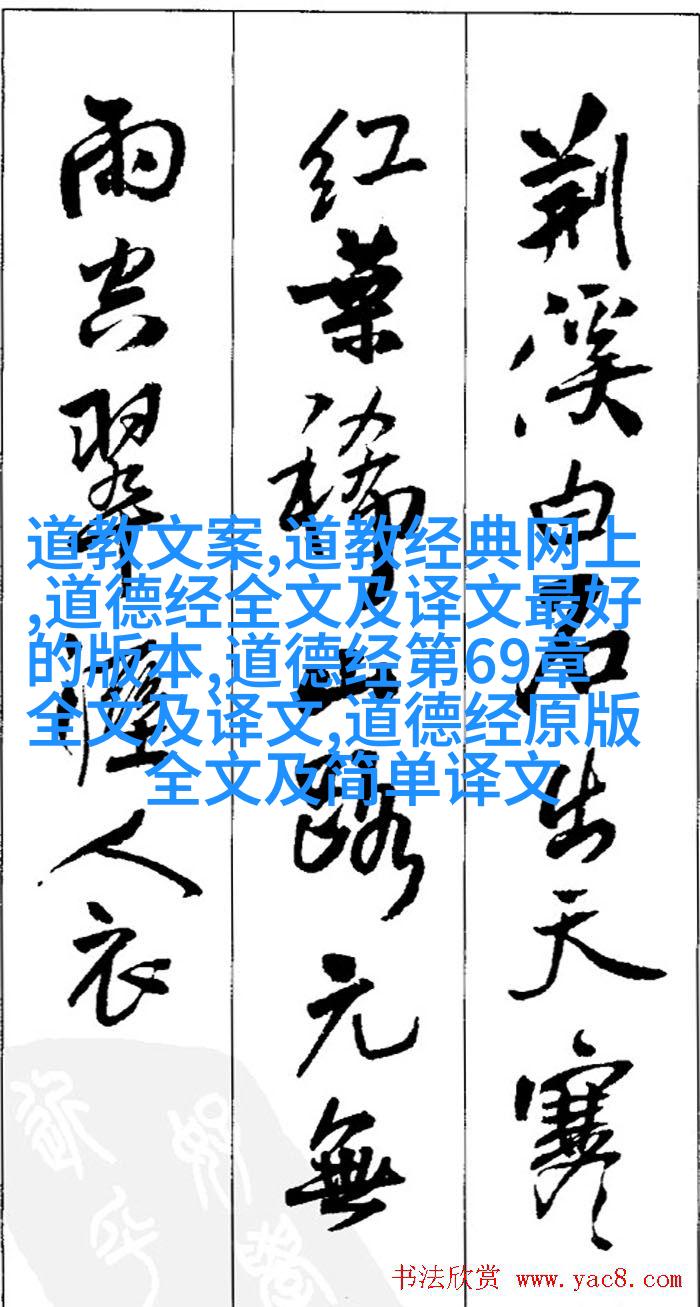 荆溪白石出天寒
红葉稀山路元無
雨空翠濕人衣
道教文案,道教经典网上
,道德经全文及译文最好
的版本,道德经第69章
全文及译文,道德经原版
全文及简单译文
书法欣赏 www.yac8.com